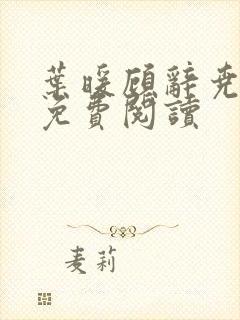 葉暖顧辭堯
免費閱讀
麦莉